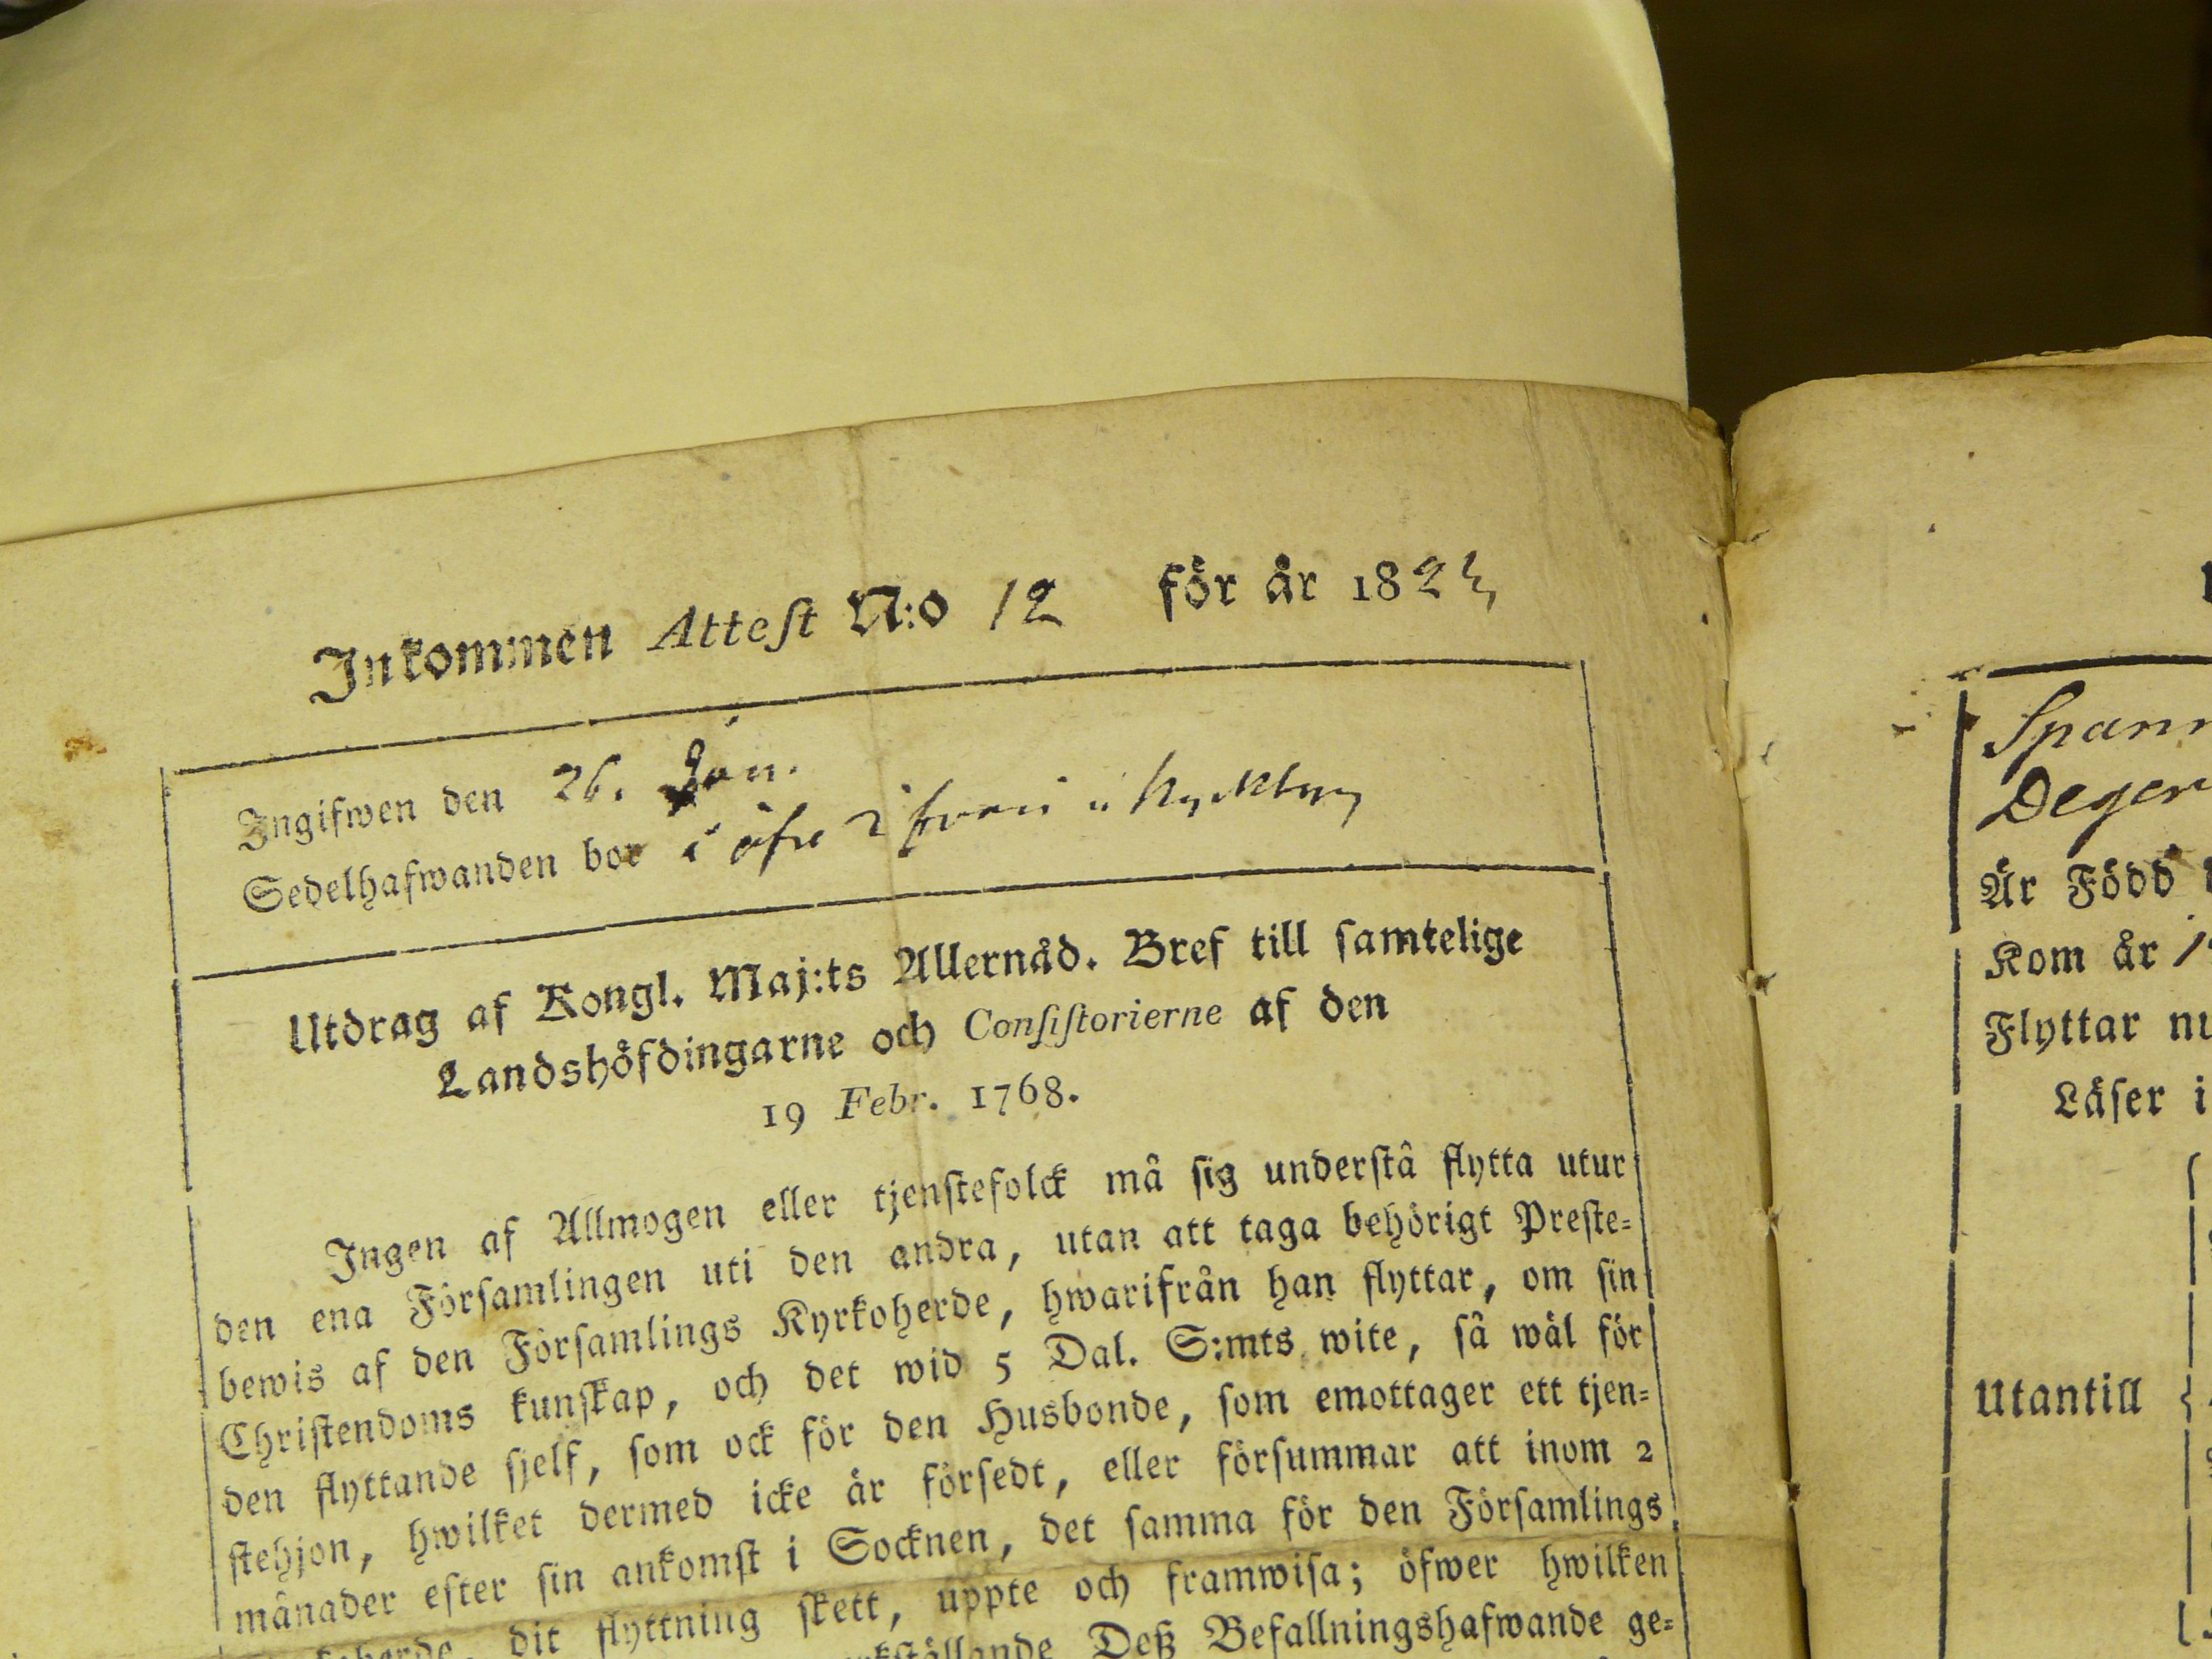 Inkommen Attest N:o 12 för år 182
Ingifwen den 26. Jan.
Sedelhafwanden bor i öfre
Utdrag af Kongl. Maj:ts Allernåd. Bref till samtelige
Landshöfdingarne och Consistorierne af den
19 Febr. 1768.
Ingen af Allmogen eller tjenstefolck må sig understå flytta utur
den ena Församlingen uti den andra, utan att taga behörigt Preste-
bewis af den Församlings Kyrkoherde, hwarifrån han flyttar, om sin
Christendoms kunskap, och det wid 5 Dal. S:mts wite, så wäl för
den flyttande sjelf, som ock för den Husbonde, som emottager ett tjen-
stehjon, hwilket dermed icke är försedt, eller försummar att inom 2
månader efter sin ankomst i Socknen, det samma för den Församlings
dit flyttning skett, uppte och framwisa; öfwer hwilken
Deß Befallningshafwande ge-
Spann
Deger
Är Född
Kom år
Flyttar nu
Läser i
Utantill